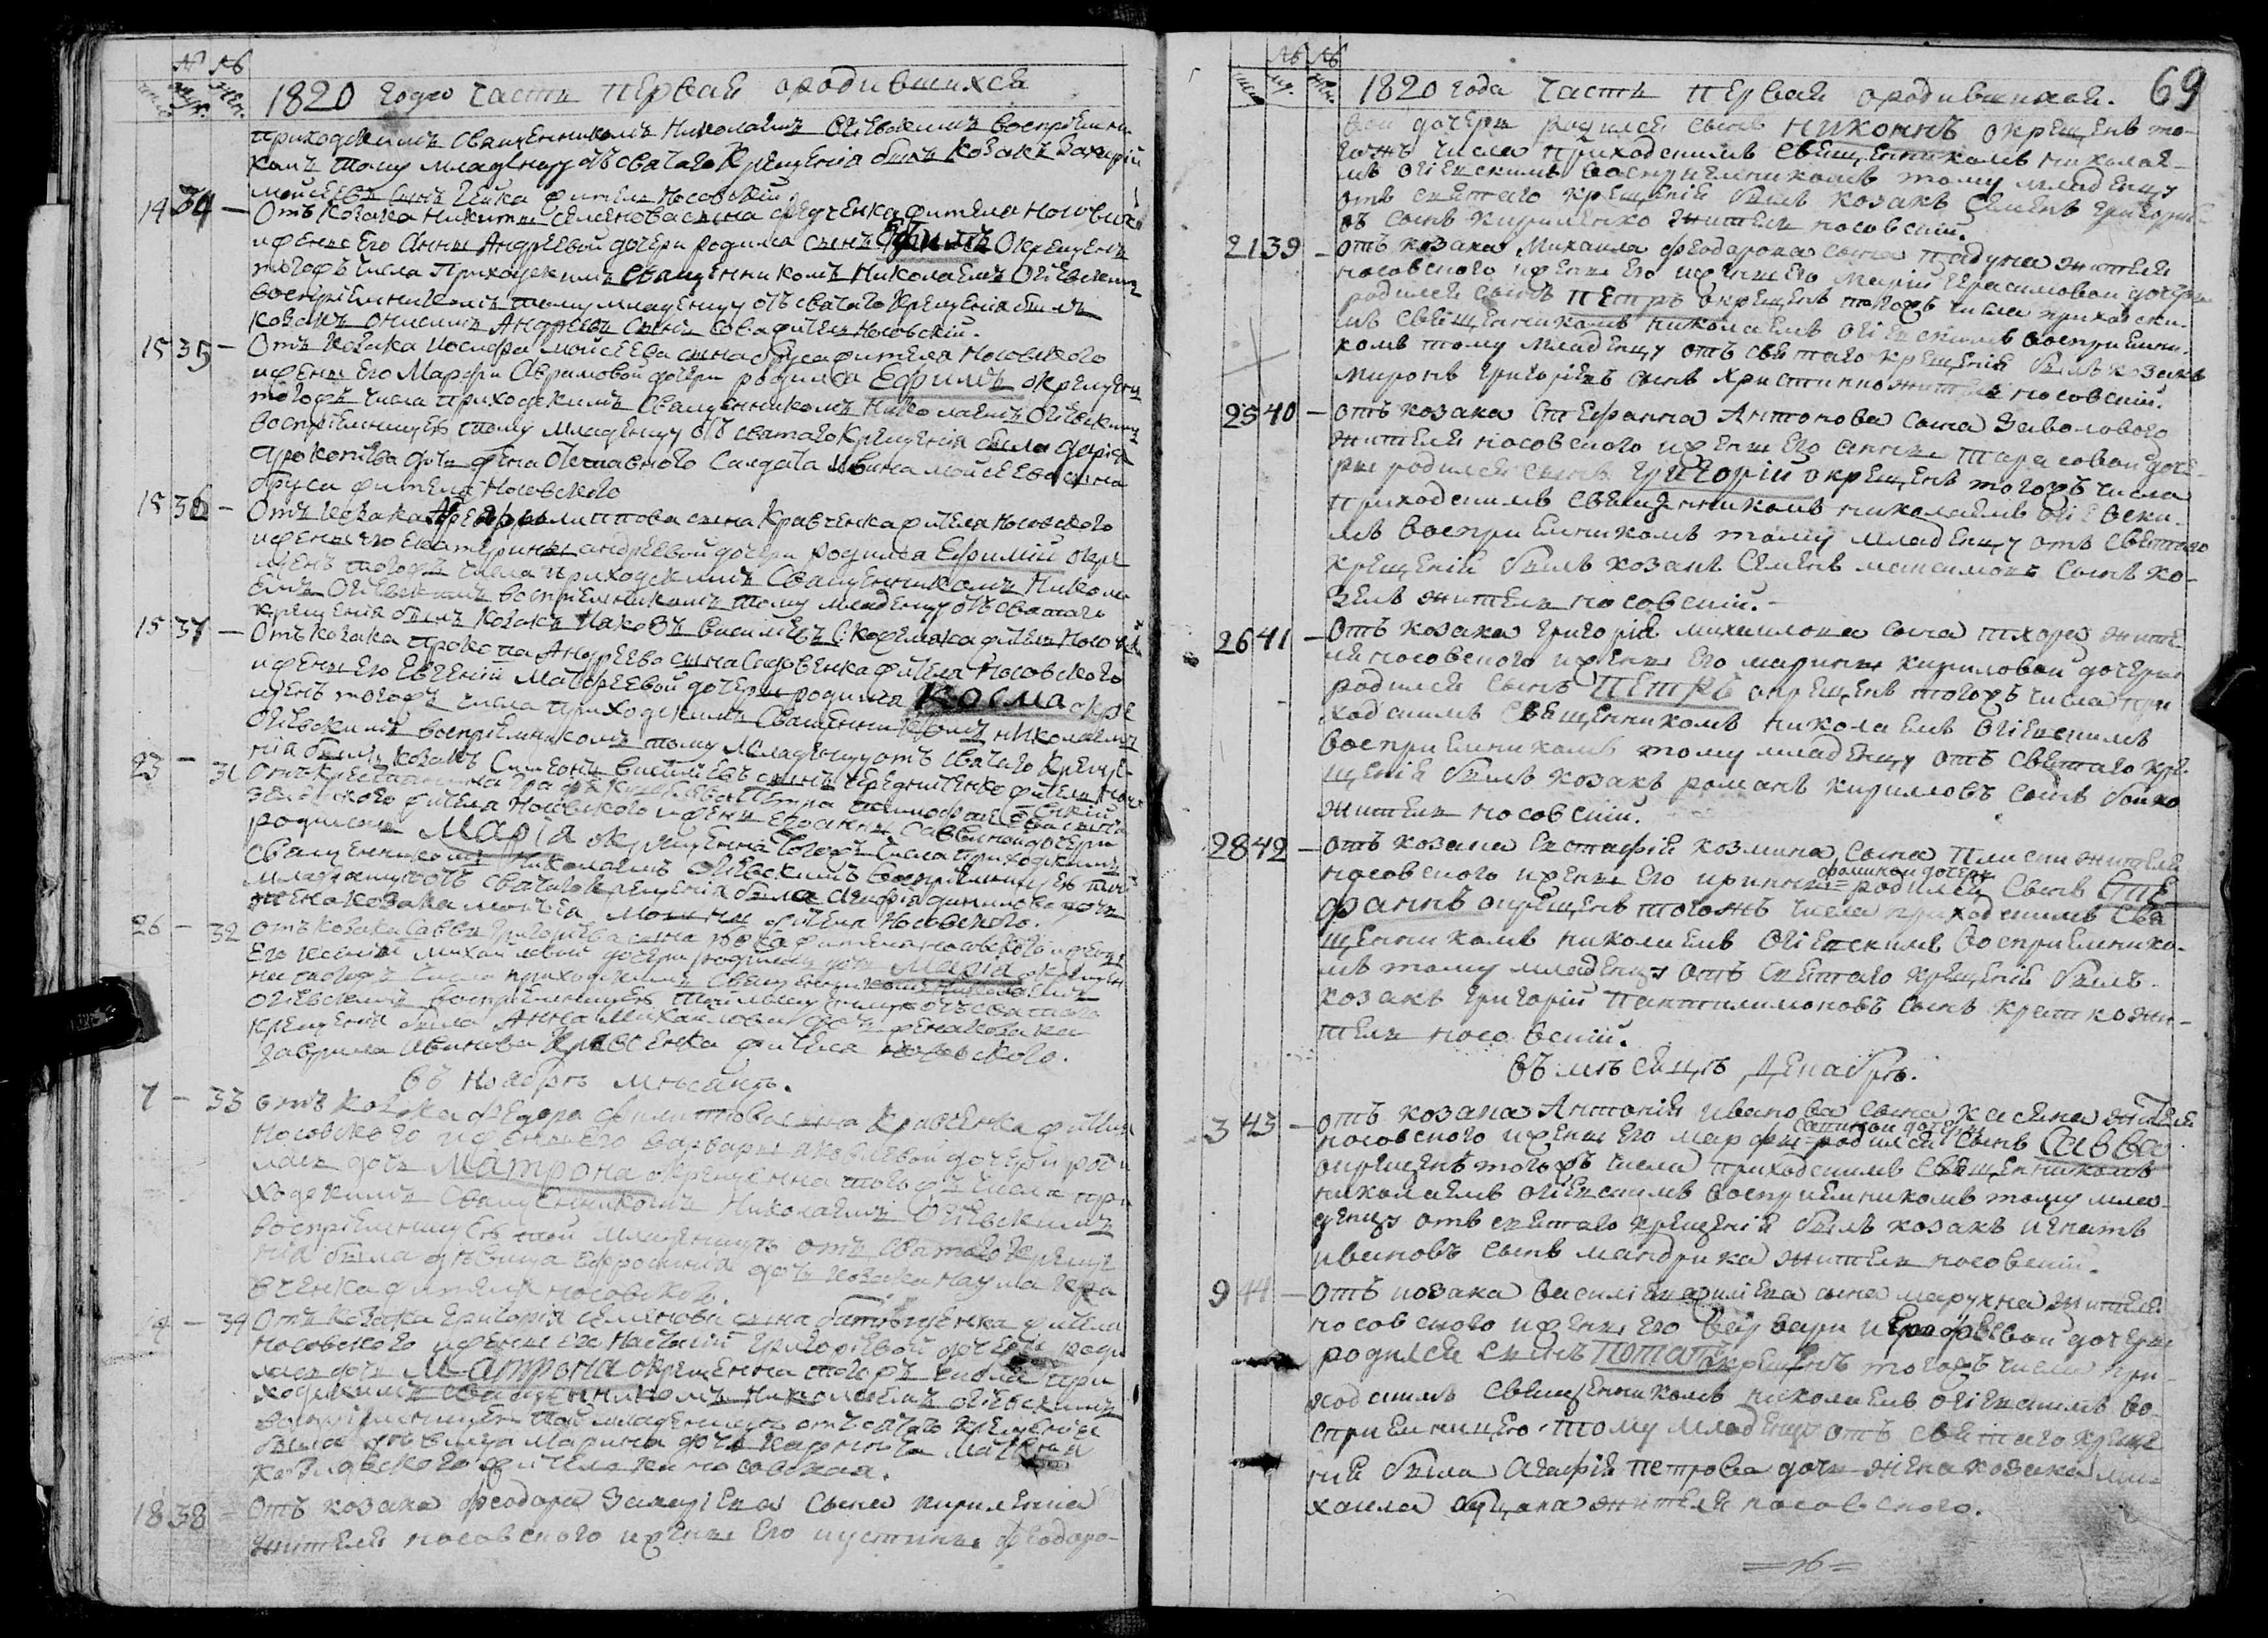 № №
числ муж. жен.
1820 года часть первая ородившихся
приходскимъ Священникомъ Николаемъ Огіевскимъ воспріемни
комъ тому младенцу отъ святаго Крещенія былъ козакъ Захарій
Мойсеевъ сынъ житель Носовскій.
14 34 – Отъ козака Никиты Семенова сына жителя Носовскаго
ижены Его Анны Андреевой дочери родился сынъ Ефимъ Окрещенъ
тогожъ числа Приходскимъ священникомъ Николаемъ Огіевскимъ
воспріемникомъ тому младенцу отъ святаго Крещенія былъ
козакъ Онисимъ Андреевъ Сынъ Сова житель Носовскій.
15 35 – Отъ козака Иосифа Мойсеева сына Бруса жителя Носовского
ижены Его Марфы Аврамовой дочери родился Ефимъ окрещенъ
тогожъ числа приходскимъ священникомъ Николаемъ Огіевскимъ
воспріемницею тому младенцу отъ святаго Крещенія была Дарія
Прокопіева дочь жена Отставного Салдата Ивана Мойсеева сына
Бруса жителя Носовского
15 36 – Отъ козака Филиппова сына Кравченка жителя Носовского
ижены Его Екатерины андреевой дочери родился Ефимій окре
щенъ тогожъ числа приходскимъ Священникомъ Никола
емъ Огіевскимъ воспріемникомъ тому младенцу отъ святаго
крещенія былъ козакъ Иаковъ Василіевъ житель Носовскій
15 37 – Отъ козака Прокопа Андреева сына жителя Носовского
ижены Его Евгеніи Матфеевой дочери родился Косма окре
щенъ тогожъ числа приходскимъ Священникомъ Николаемъ
Огіевскимъ воспріемникомъ тому младенцу отъ святаго Креще
нія былъ козакъ Симеонъ Василіевъ сынъ Чередниченко житель Носо
вскій
23 – 31 Отъ Крестьянина Графа Петра Тимофеева сына
жителя Носовского ижены Его Анны Саввиной дочери
родилась Марія окрещенна тогожъ числа приходскимъ
священникомъ Николаемъ Огіевскимъ воспріемницею той
младеницы отъ святаго крещенія была Агафія дочь
жена козака жителя Носовского.
26 – 32 отъ козака Саввы Григоріева сына жителя Носовского ижены
Его Михайловой дочери родилась дочь Марія окрещен
на тогожъ числа приходскимъ Священникомъ Николаемъ
Огіевскимъ воспріемницею той младеницы отъ святаго
крещенія была Анна Михайлова дочь жена козака
Гаврила Иванова Кравченка жителя Носовского.
Въ Ноябрѣ мѣсяцѣ.
7 – 33 отъ козака Федора Филиппова сына Кравченка жителя
Носовского ижены Его Варвары Яковлевой дочери роди
лась дочь Матрона окрещенна тогожъ числа при
ходскимъ Священникомъ Николаемъ Огіевскимъ
воспріемницею той младеницы отъ святаго Креще
нія была дѣвица Ефросинія дочь козака Наума Кра
вченка жителя Носовского.
14 – 34 Отъ козака Григорія Семенова сына жителя
Носовского ижены его Настасіи Григоріевой дочери роди
лась дочь Матрона окрещенна тогожъ числа при
ходскимъ священникомъ Николаемъ Огіевскимъ
воспріемницею той младеницы отъ святаго крещенія
была дѣвица Марина дочь
Козловского жителька носовская.
18 38 – Отъ козака Феодора Захаріева Сына Кириленка
жителя носовского ижены Его иустины Феодоро-
№ №
числ му. жен.
1820 года Часть первая ородившихся. 69
вой дочери родился сынъ Никоннъ окрещенъ то-
гожъ числа Приходскимъ Священникомъ Никола-
мъ Огіевскимъ воспріемникомъ тому младенцу
отъ святаго крещенія былъ козакъ Семенъ Григорі
въ сынъ Кириленко житель носовскій.
21 39 – отъ козака Михаила Феодорова сына жителя
носовского ижены Его ижены Его Маріи Герасимовой дочери
родился сынъ Петръ окрещенъ тогожъ числа приходски-
мъ священникомъ Николаемъ Огіевскимъ воспріемни-
комъ тому младенцу отъ святаго крещенія былъ козакъ
Миронъ Григоріевъ сынъ житель носовскій.
25 40 – отъ козака Стефанна Антонова сына Заволового
жителя носовского ижены Его анны Тарасовой доче-
ри родился сынъ Григорій окрещенъ тогожъ числа
Приходскимъ священникомъ николаемъ Огіевски-
мъ воспріемникомъ тому младенцу отъ святаго
крещенія былъ козакъ Семенъ Максимовъ Сынъ Ко-
зелъ житель носовскій.
26 41 – Отъ козака Григорія Михайлова сына Тхора жите-
ля носовского ижены Его Марины Кириловой дочери
родился сынъ Петръ окрещенъ тогожъ числа при
ходскимъ Священникомъ николаемъ Огіевскимъ
воспріемникомъ тому младенцу отъ святаго кре
щенія былъ козакъ Романъ Кириловъ сынъ Бойко
житель носовскій.
28 42 – отъ козака Евстафія Козмина сына жителя
фоминой дочери
носовского ижены Его ирины = родился Сынъ Сте
фаннъ окрещенъ тогожъ числа приходскимъ Свя
щенникомъ николаемъ Огіевскимъ воспріемнико-
мъ тому младенцу отъ святаго крещенія былъ
козакъ Григорій Пантилимоновъ сынъ жи-
тель носовскій.
въ мѣсяцѣ Декабрѣ.
3 43 – отъ козака Антонія Иванова сына Касяна жителя
Савиной дочери
носовского ижены Его Марфы = родился сынъ Савва
окрещенъ тогожъ числа приходскимъ священникомъ
николаемъ Огіевскимъ воспріемникомъ тому мла
денцу отъ святаго крещенія былъ козакъ Игнатъ
Ивановъ сынъ Мандрика житель носовскій.
9 44 – Отъ козака Василія сына жителя
носовского ижены Его Варвари дочери
родился сынъ Потапъ окрещенъ тогожъ числа при-
ходскимъ священникомъ николаемъ Огіевскимъ во-
спріемницею тому младенцу отъ святаго креще
нія была Агафія Петрова дочь жена козака Ми-
хаила жителя носовского.